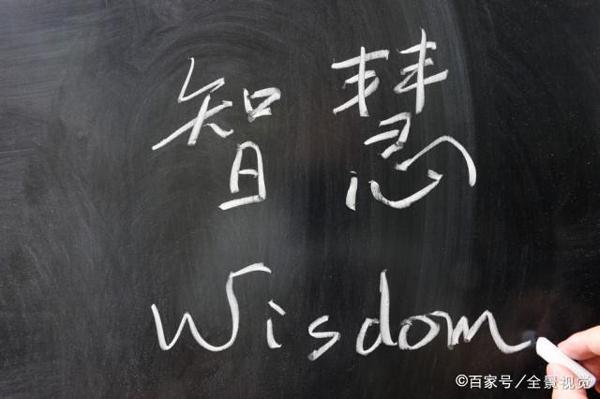 智慧
Wisdom
©百家号/全景视觉